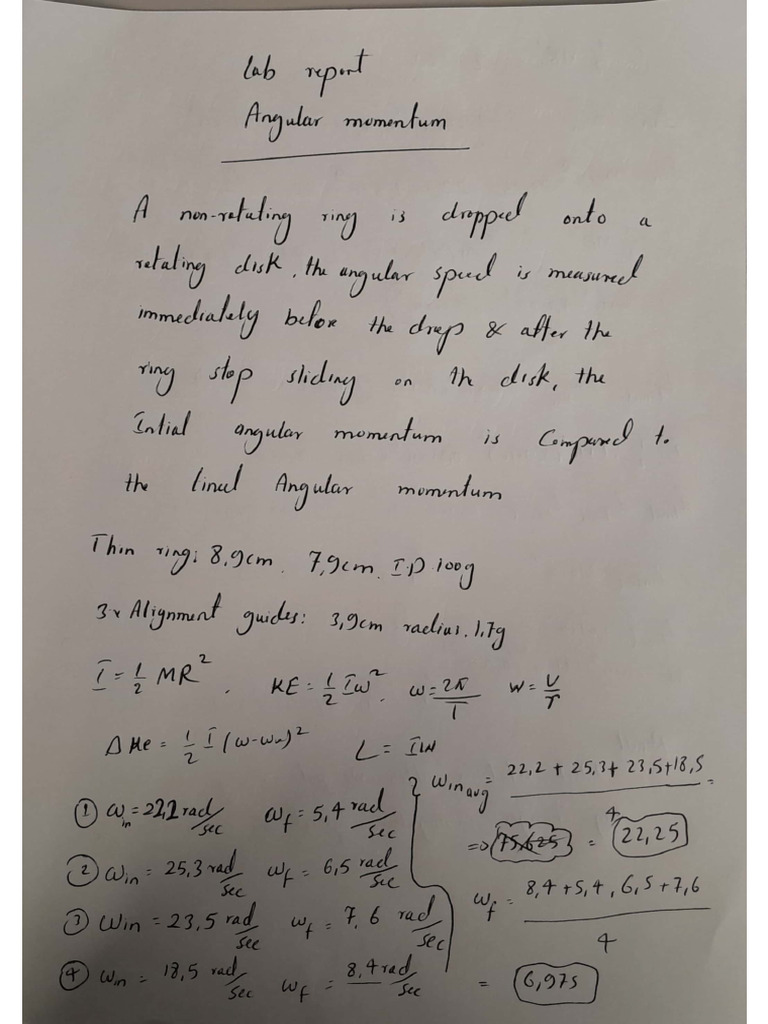 Lab report
Angular momentum
A non-rotating ring is dropped onto a
rotating disk, the angular speed is measured
immediately before the drop & after the
ring stop sliding on the disk, the
Intial angular momentum is Compared to
the lineal Angular momentum
Thin ring: 8,9cm. 7,9cm. I.D 100g
3x Alignment guides: 3,9cm radius. 1.7g
I = 1/2 MR², KE = 1/2 Iω², ω = 2π/T W = V/r
ΔKe = 1/2 I (ω-ω)² L = IW
① ω in = 22,2 rad/sec ωf = 5,4 rad/sec
② ω in = 25,3 rad/sec ωf = 6,5 rad/sec
③ ω in = 23,5 rad/sec ωf = 7,6 rad/sec
④ ω in = 18,5 rad/sec ωf = 8,4 rad/sec
ω in avg = 22,2 + 25,3 + 23,5 + 18,5 / 4 =
=> 75,625 = 22,25
ωf = 8,4 + 5,4, 6,5 + 7,6 / 4
= 6,975